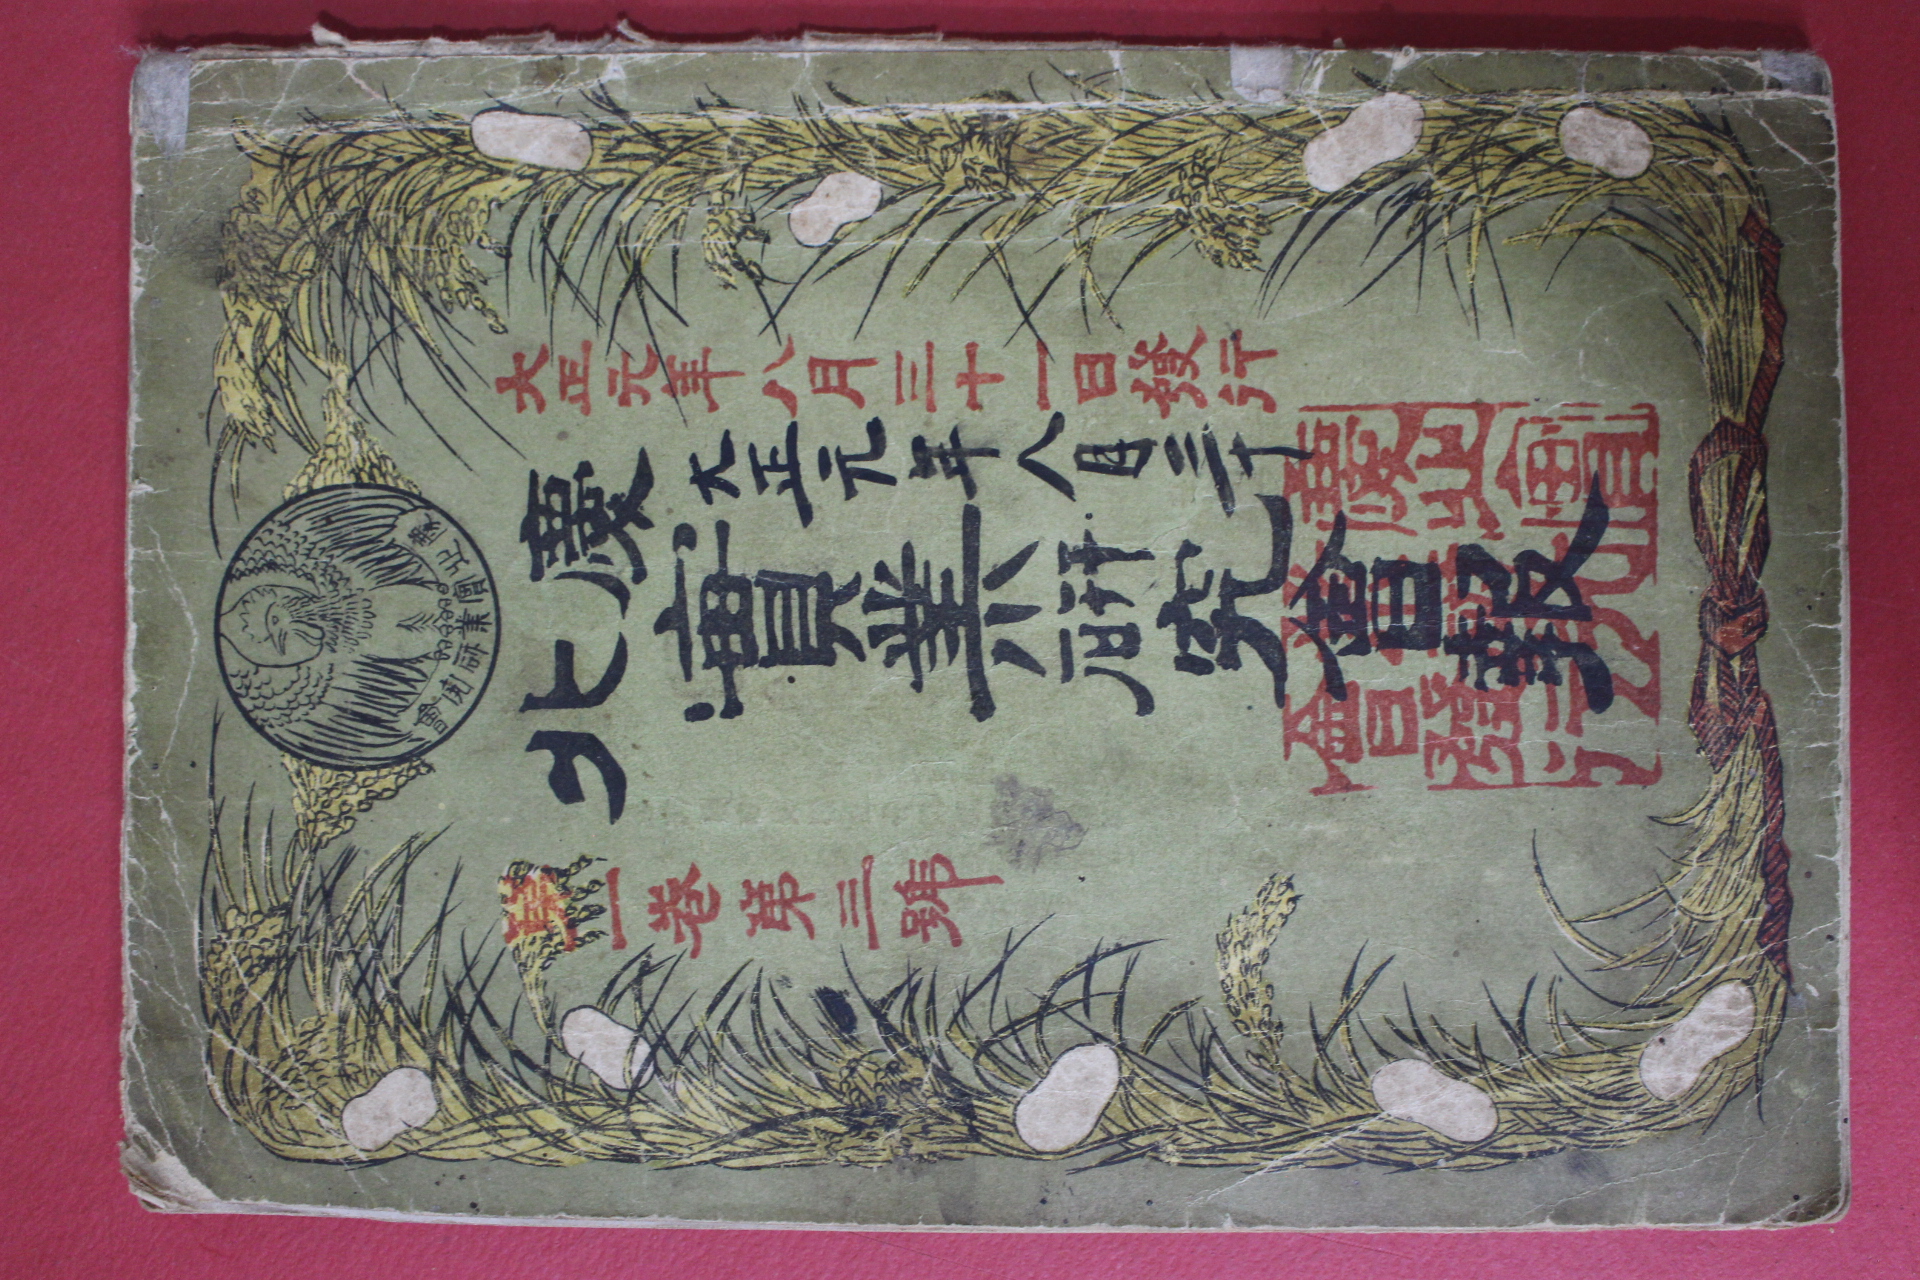 慶北實業研究會
慶北
大正元年八月三十一日發行
大正元年八月三十
實業研究會報
慶北實
業研究
會發行
第一卷第三號